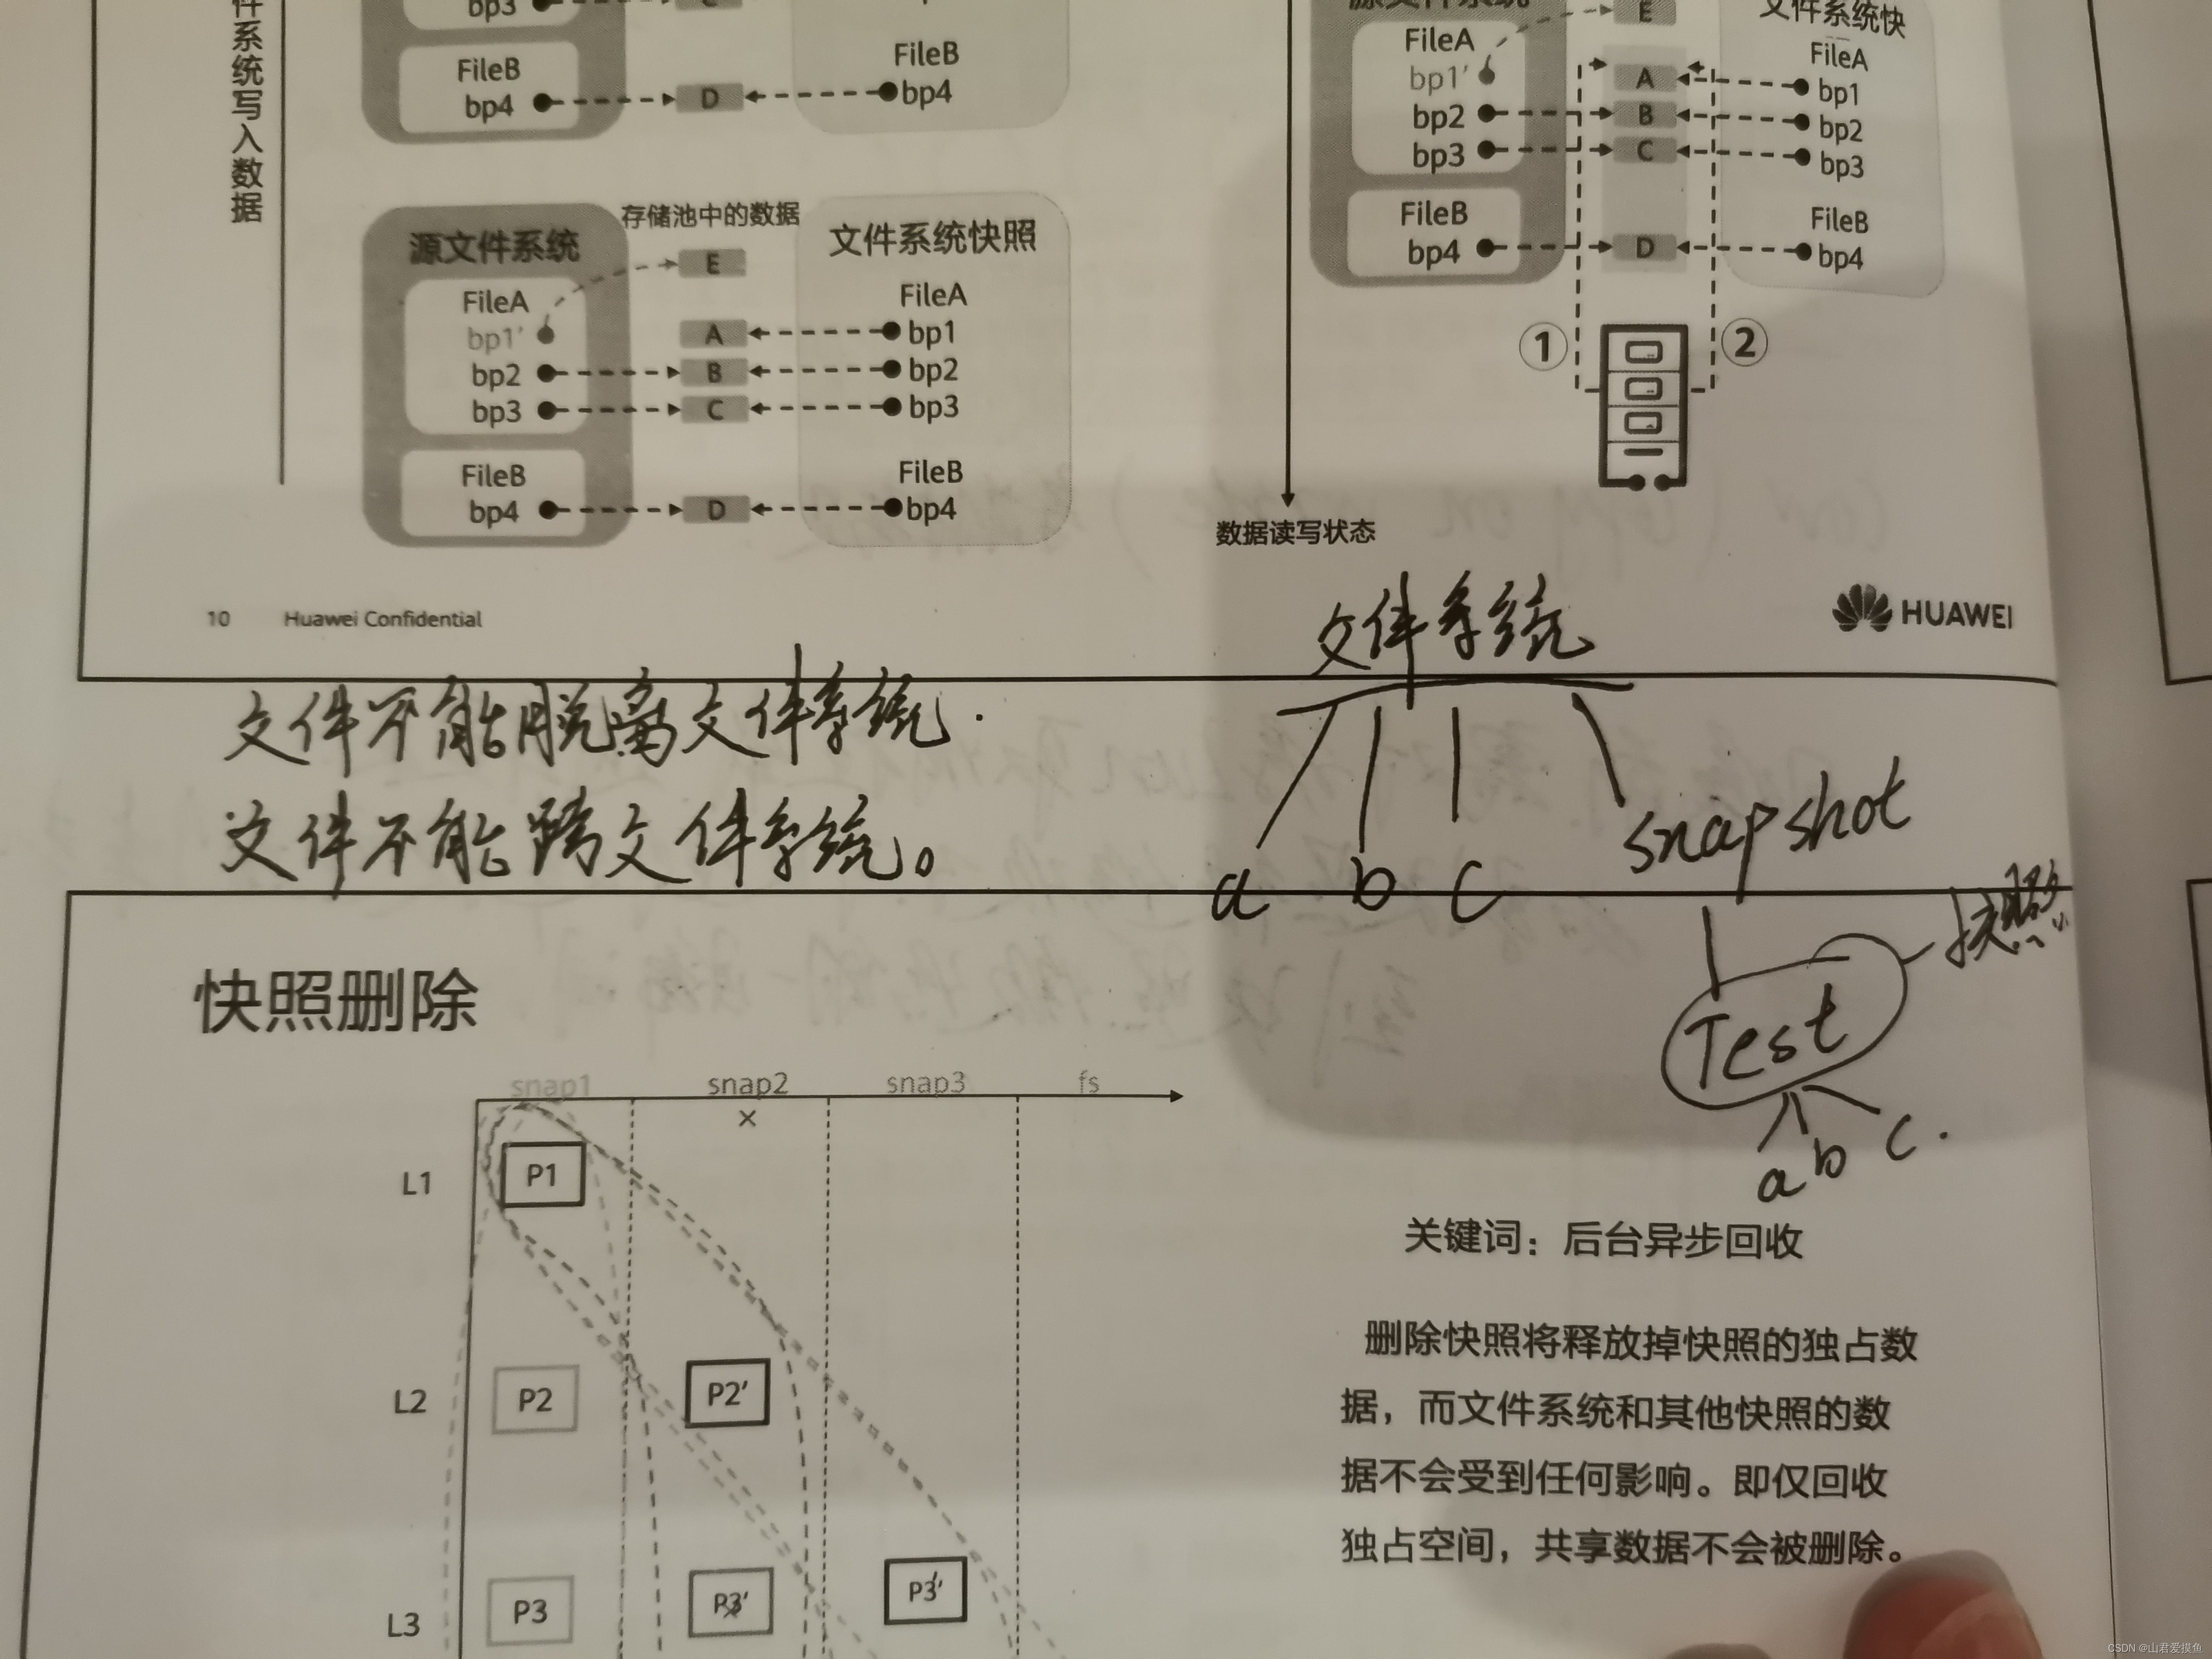 件系统写入数据
bp3
C
FileB
bp4
D
FileB
bp4
源文件系统
存储池中的数据
文件系统快照
E
FileA
bp1′
bp2
bp3
A
B
C
FileA
bp1
bp2
bp3
FileB
bp4
D
FileB
bp4
10 Huawei Confidential
源文件系统
文件系统快
E
FileA
bp1′
bp2
bp3
A
B
C
FileA
bp1
bp2
bp3
FileB
bp4
D
FileB
bp4
① ②
数据读写状态
HUAWEI
文件系统
文件不能脱离文件系统.
文件不能跨文件系统。
a b c snapshot
快照
Test
a b c.
快照删除
snap1 snap2 snap3 fs
×
L1 P1
L2 P2 P2′
L3 P3 P3′ P3′′
关键词：后台异步回收
删除快照将释放掉快照的独占数
据，而文件系统和其他快照的数
据不会受到任何影响。即仅回收
独占空间，共享数据不会被删除。
CSDN @山君爱摸鱼